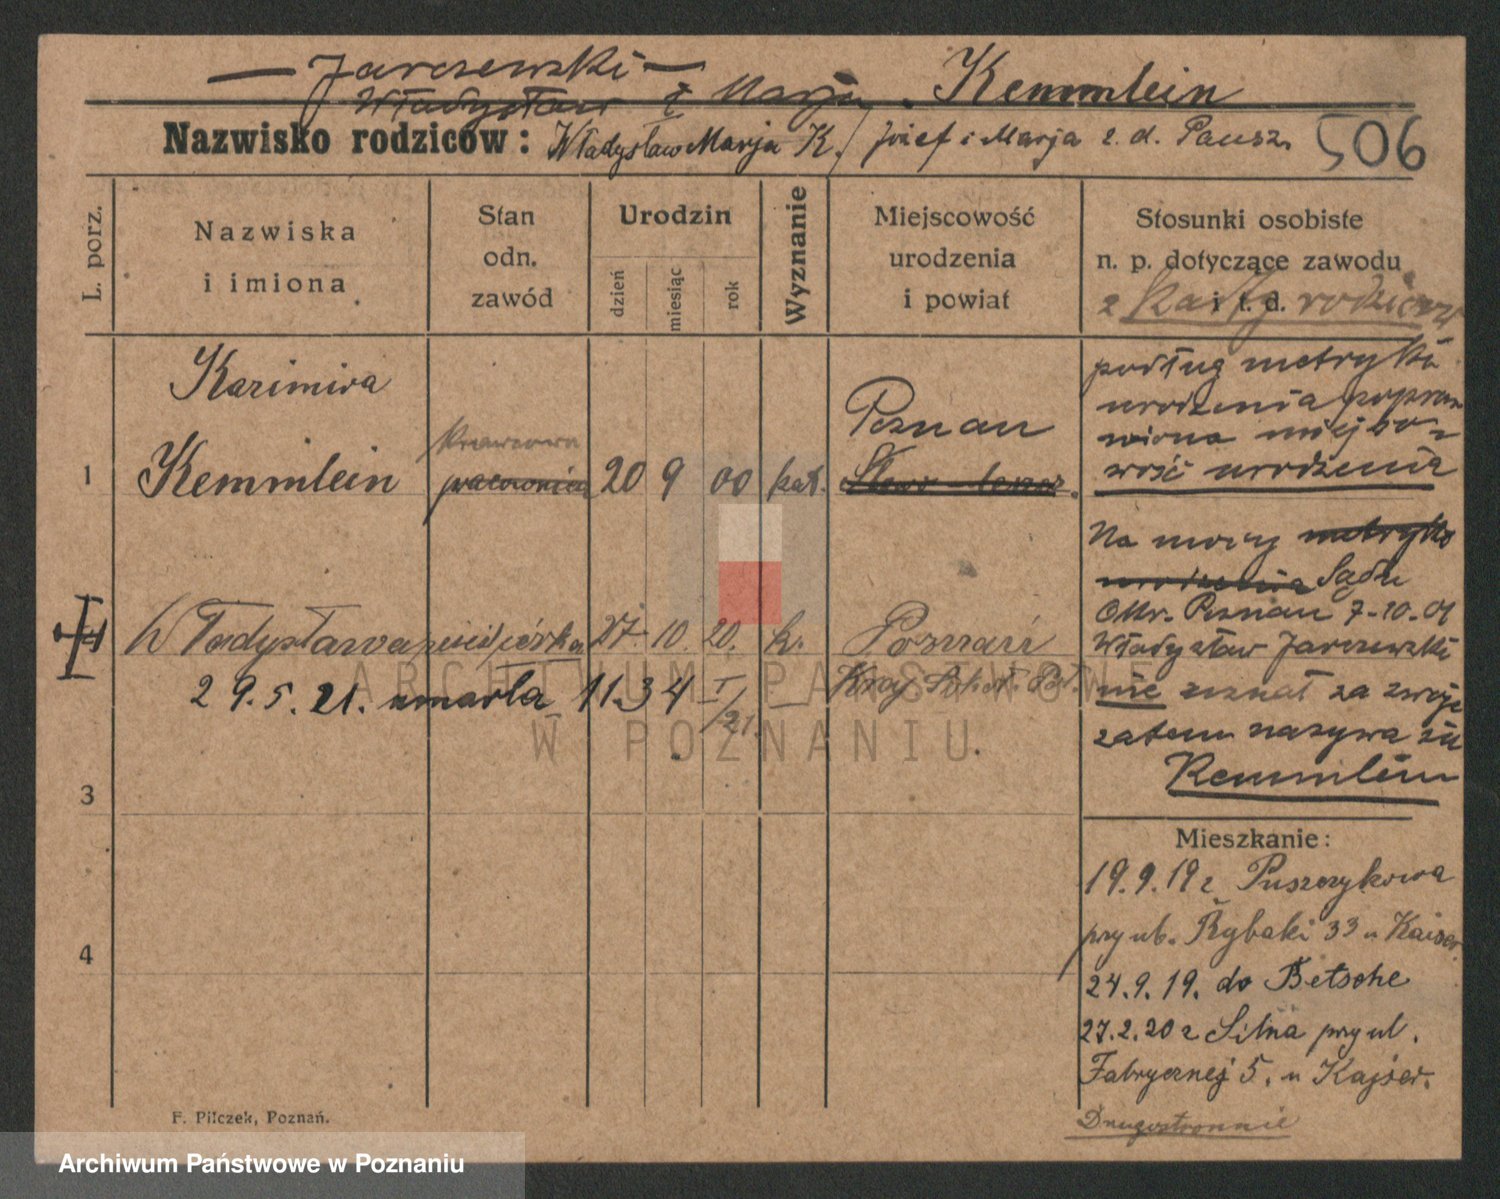 — Jarczewski —
Władysław i Marja Kemmlein
Nazwisko rodziców: Władysław Marja K. / Józef i Marja z. d. Pausz. 506
L. porz.
Nazwiska
i imiona
Stan
odn.
zawód
Urodzin
dzień
miesiąc
rok
Wyznanie
Miejscowość
urodzenia
i powiat
Stosunki osobiste
n. p. dotyczące zawodu
i t. d.
z karty rodziców
1
Kazimira
Kemmlein
pracownica
20 9 00 kat.
Poznan
podług metryki
urodzenia popra
wiona miejsco-
wość urodzenia
Na mocy metryki
urodzenia Sądu
Okr. Poznan 7-10-01
Władysław Jarczewski
nie uznał za swoje
zatem nazywa się
Kemmlein
Władysława córka 27. 10. 20. k. Poznań
29.5.21. zmarła 1134 I/21. Kraj
3
4
Mieszkanie:
19.9.19 z Puszczykowa
przy ul. Rybaki 33 u Kaiser
24.9.19. do Betsche
27.2.20 z Silna przy ul.
Fabrycznej 5. u Kajser.
Drugostronnie
F. Pilczek, Poznań.
ARCHIWUM PAŃSTWOWE
W POZNANIU
Archiwum Państwowe w Poznaniu